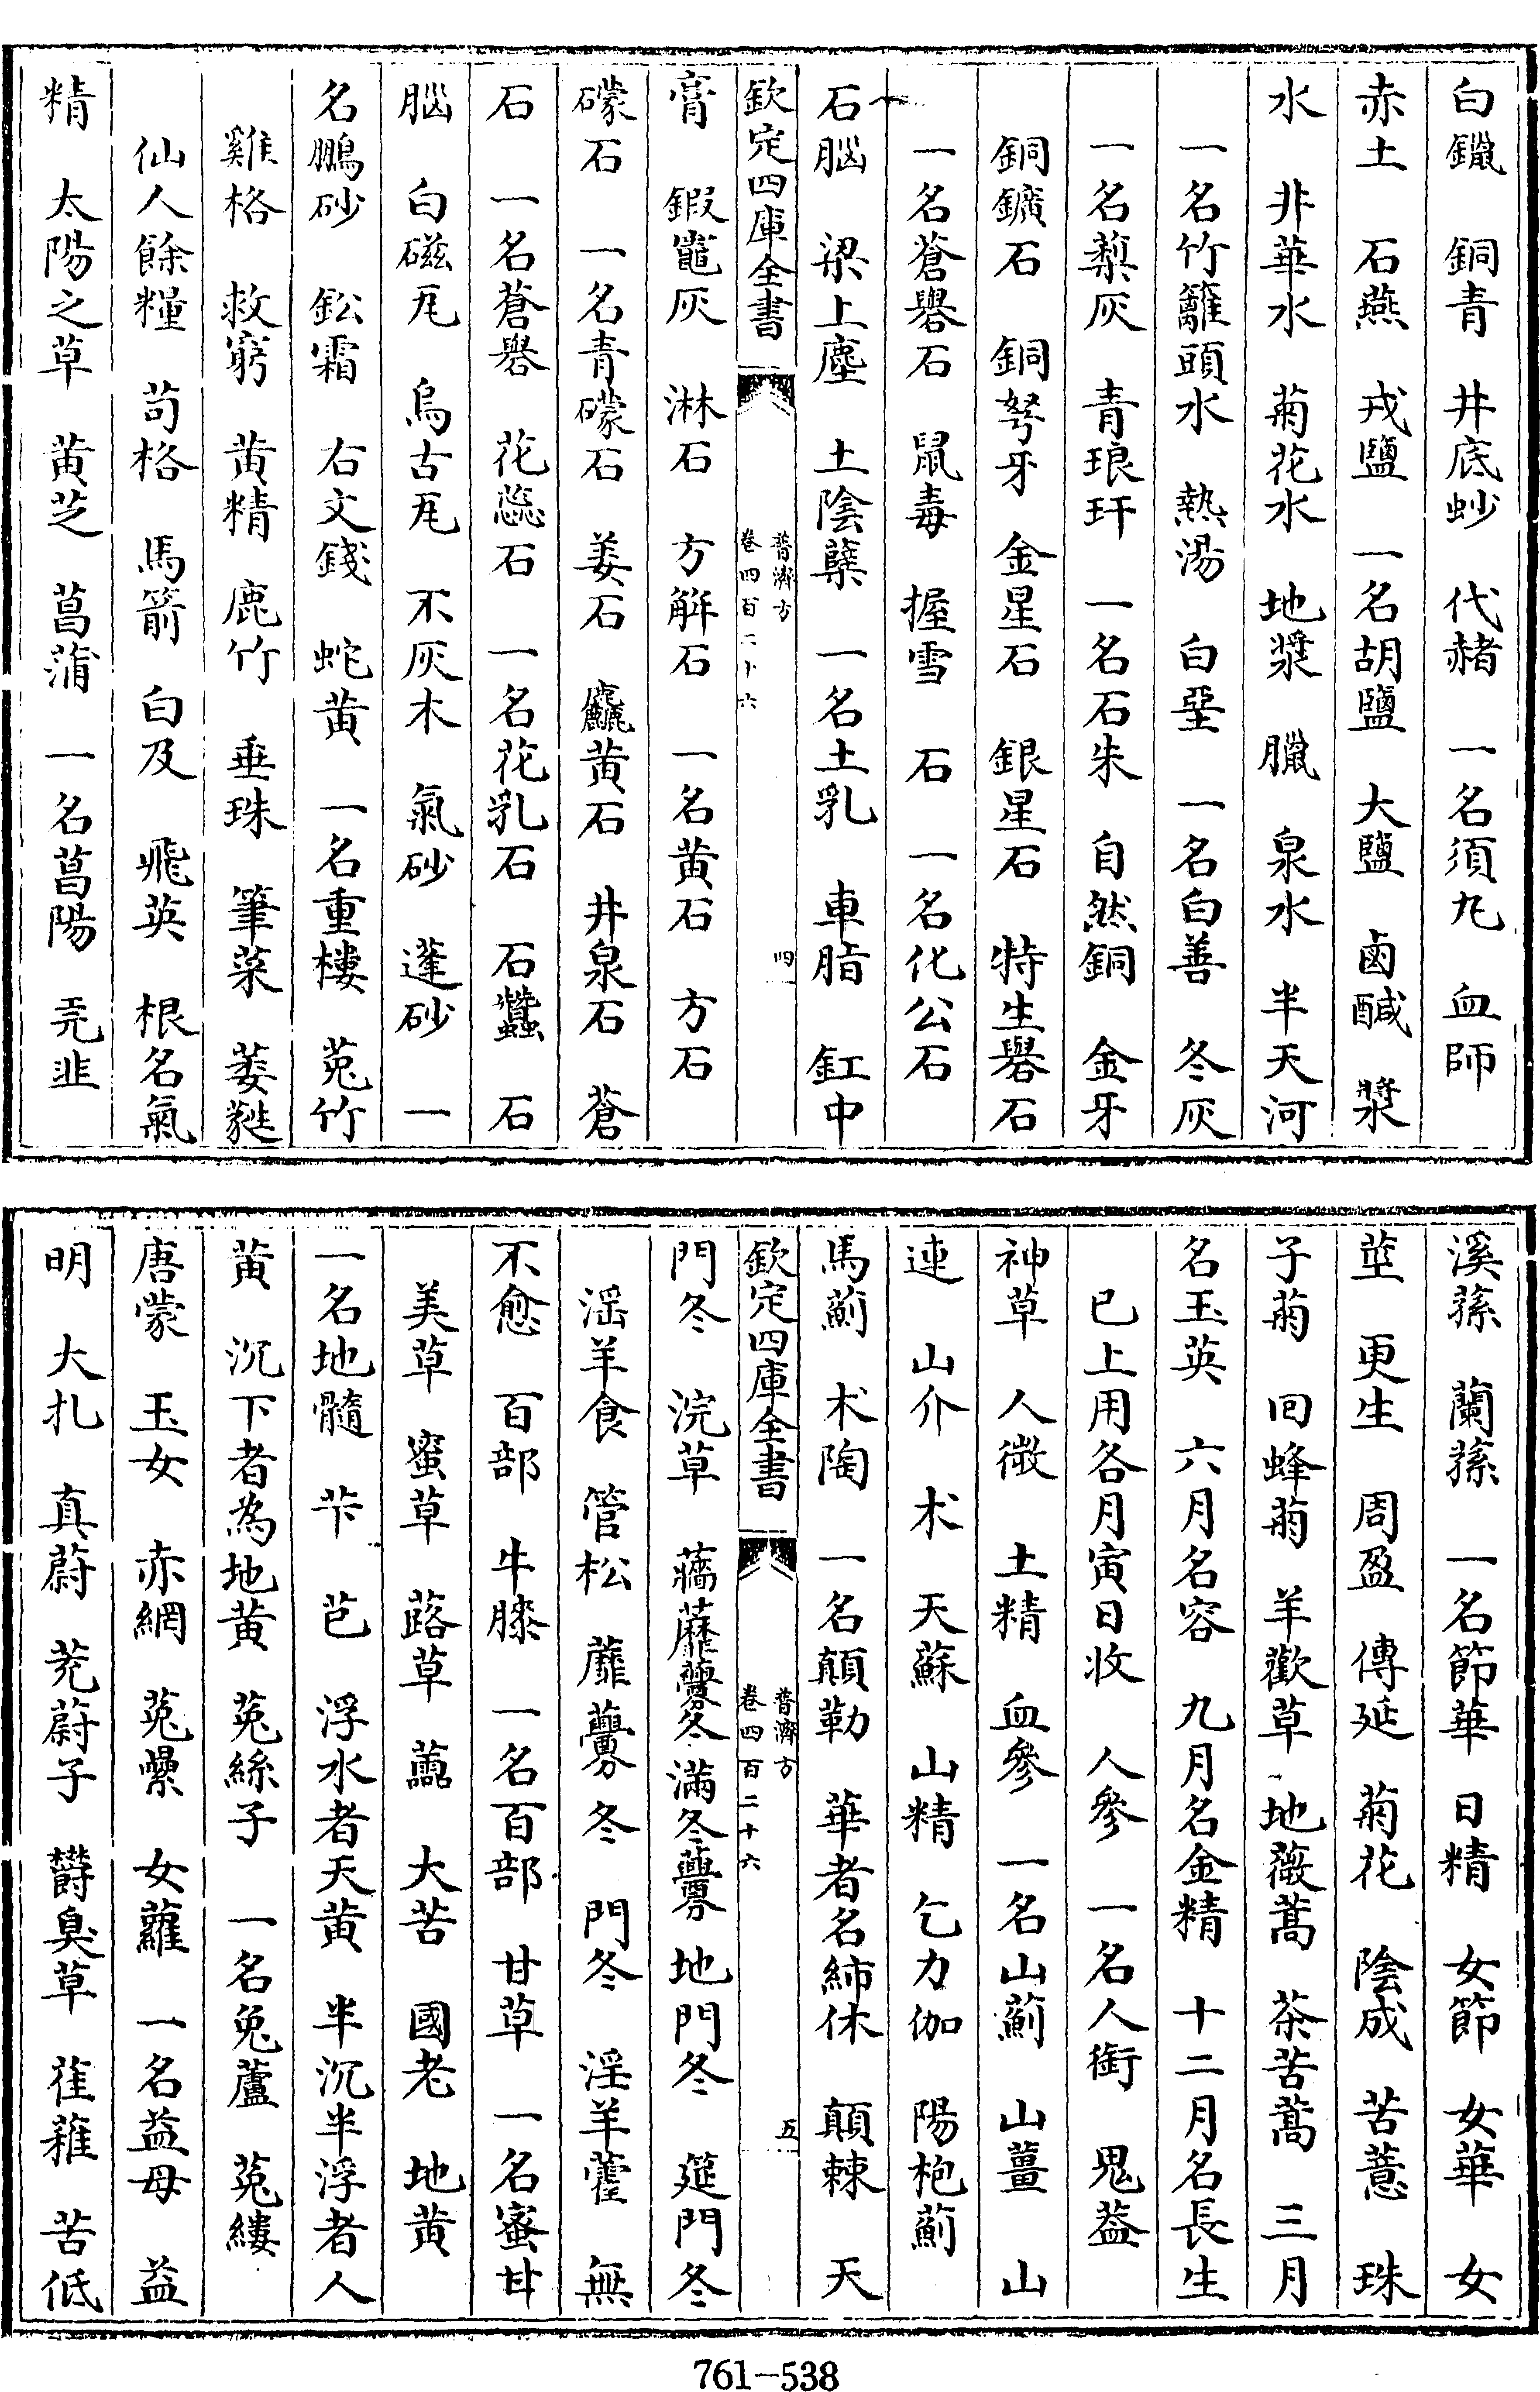 白鑞　銅青　井底砂　代赭　一名須丸　血師
赤土　石燕　戎鹽　一名胡鹽　大鹽　鹵鹹　漿
水　井華水　菊花水　地漿　臘　泉水　半天河
一名竹籬頭水　熱湯　白堊　一名白善　冬灰
一名藜灰　青琅玕　一名石朱　自然銅　金牙
銅鑛石　銅弩牙　金星石　銀星石　特生礜石
一名蒼礜石　鼠毒　握雪　石　一名化公石
石腦　梁上塵　土陰孽　一名土乳　車脂　釭中
欽定四庫全書　普濟方　卷四百二十六　四
膏　鍜竈灰　淋石　方解石　一名黄石　方石
礞石　一名青礞石　姜石　麤黄石　井泉石　蒼
石　一名蒼礜　花蕊石　一名花乳石　石蠶　石
腦　白磁瓦　烏古瓦　不灰木　氣砂　蓬砂　一
名鵬砂　鈆霜　右文錢　蛇黄　一名重樓　菟竹
雞格　救窮　黄精　鹿竹　垂珠　筆菜　萎蕤
仙人餘糧　苟格　馬箭　白及　飛英　根名氣
精　太陽之草　黄芝　菖蒲　一名菖陽　堯韭
溪蓀　蘭蓀　一名節華　日精　女節　女華　女
莖　更生　周盈　傳延　菊花　陰成　苦薏　珠
子菊　回蜂菊　羊歡草　地薇蒿　茶苦蒿　三月
名玉英　六月名容　九月名金精　十二月名長生
已上用各月寅日收　人參　一名人銜　鬼蓋
神草　人微　土精　血參　一名山薊　山薑　山
連　山介　朮　天蘇　山精　乞力伽　陽枹薊
馬薊　朮陶　一名顛勒　華者名締休　顛棘　天
欽定四庫全書　普濟方　卷四百二十六　五
門冬　浣草　蘠蘼虋冬滿冬虋　地門冬　筵門冬
淫羊食　管松　蘼虋冬　門冬　淫羊藿　無
不愈　百部　牛膝　一名百部　甘草　一名蜜甘
美草　蜜草　蕗草　蘦　大苦　國老　地黄
一名地髓　芐　芑　浮水者天黄　半沉半浮者人
黄　沉下者為地黄　菟絲子　一名兔蘆　菟縷
唐蒙　玉女　赤網　菟纍　女蘿　一名益母　益
明　大札　真蔚　茺蔚子　欝臭草　萑蓷　苦低
761-538